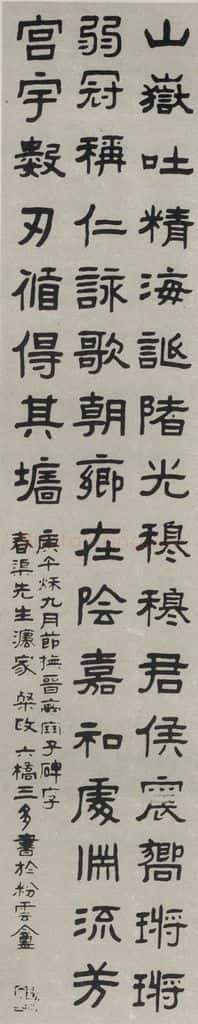 山嶽吐精海誕陼光穆穆君侯震嚮鏘鏘
弱冠稱仁詠歌朝鄉在陰嘉和處渊流芳
宫宇數刃循得其墻
庚午秌九月節撫晉孫夫子碑字
春渠先生灋家 粲政 六橋三多書於粉雲盦